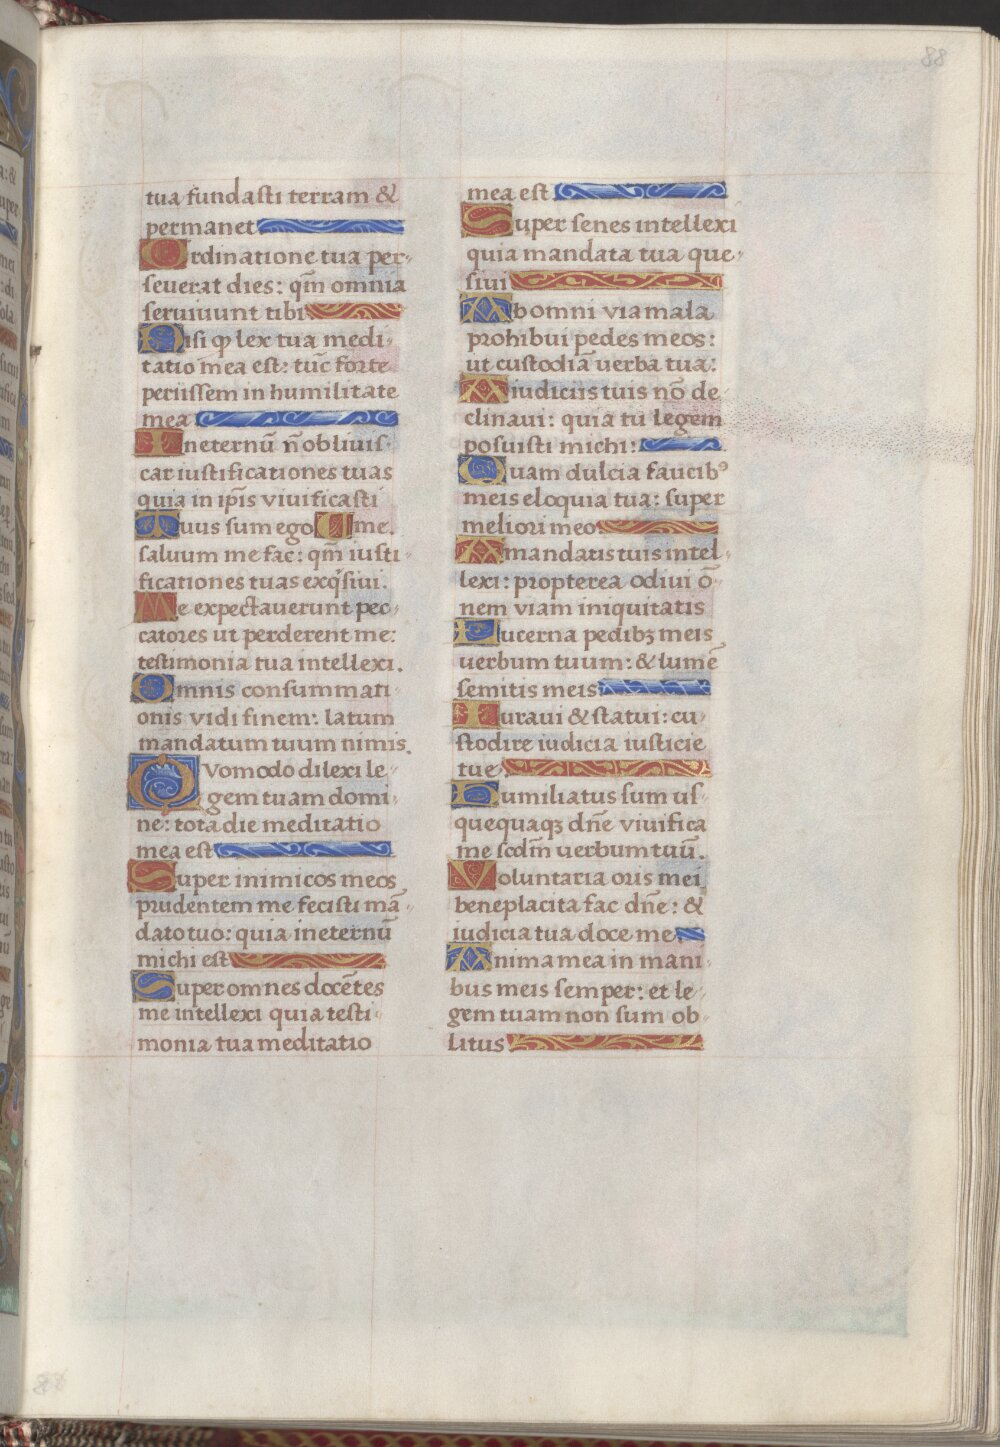 88
tua fundasti terram &
permanet
Ordinatione tua per-
seuerat dies: qm̄ omnia
seruiuunt tibi
Nisi ꝙ lex tua medi-
tatio mea est: tūc forte
periissem in humilitate
mea
Ineternū n̄ obliuis-
car iustificationes tuas
quia in ip̄is viuificasti
Tuus sum ego me.
saluum me fac: qm̄ iusti-
ficationes tuas exq̇siui.
Me expectauerunt pec-
catores ut perderent me:
testimonia tua intellexi.
Omnis consummati-
onis vidi finem: latum
mandatum tuum nimis.
QVomodo dilexi le-
gem tuam domi-
ne: tota die meditatio
mea est
Super inimicos meos
prudentem me fecisti mā-
dato tuo: quia ineternū
michi est
Super omnes docētes
me intellexi quia testi-
monia tua meditatio
mea est
Super senes intellexi
quia mandata tua que-
siui
Ab omni via mala
prohibui pedes meos:
ut custodiā uerba tua:
A iudiciis tuis nō de-
clinaui: quia tu legem
posuisti michi:
Quam dulcia faucibꝰ
meis eloquia tua: super
meliori meo
A mandatis tuis intel-
lexi: propterea odiui ō-
nem viam iniquitatis
Lucerna pedibꝫ meis
uerbum tuum: & lumē
semitis meis
Iuraui & statui: cu-
stodire iudicia iusticie
tue
Humiliatus sum us-
quequaqꝫ dn̄e viuifica
me scdm̄ uerbum tuū.
Voluntaria oris mei
beneplacita fac dn̄e: &
iudicia tua doce me
Anima mea in mani-
bus meis semper: et le-
gem tuam non sum ob-
litus